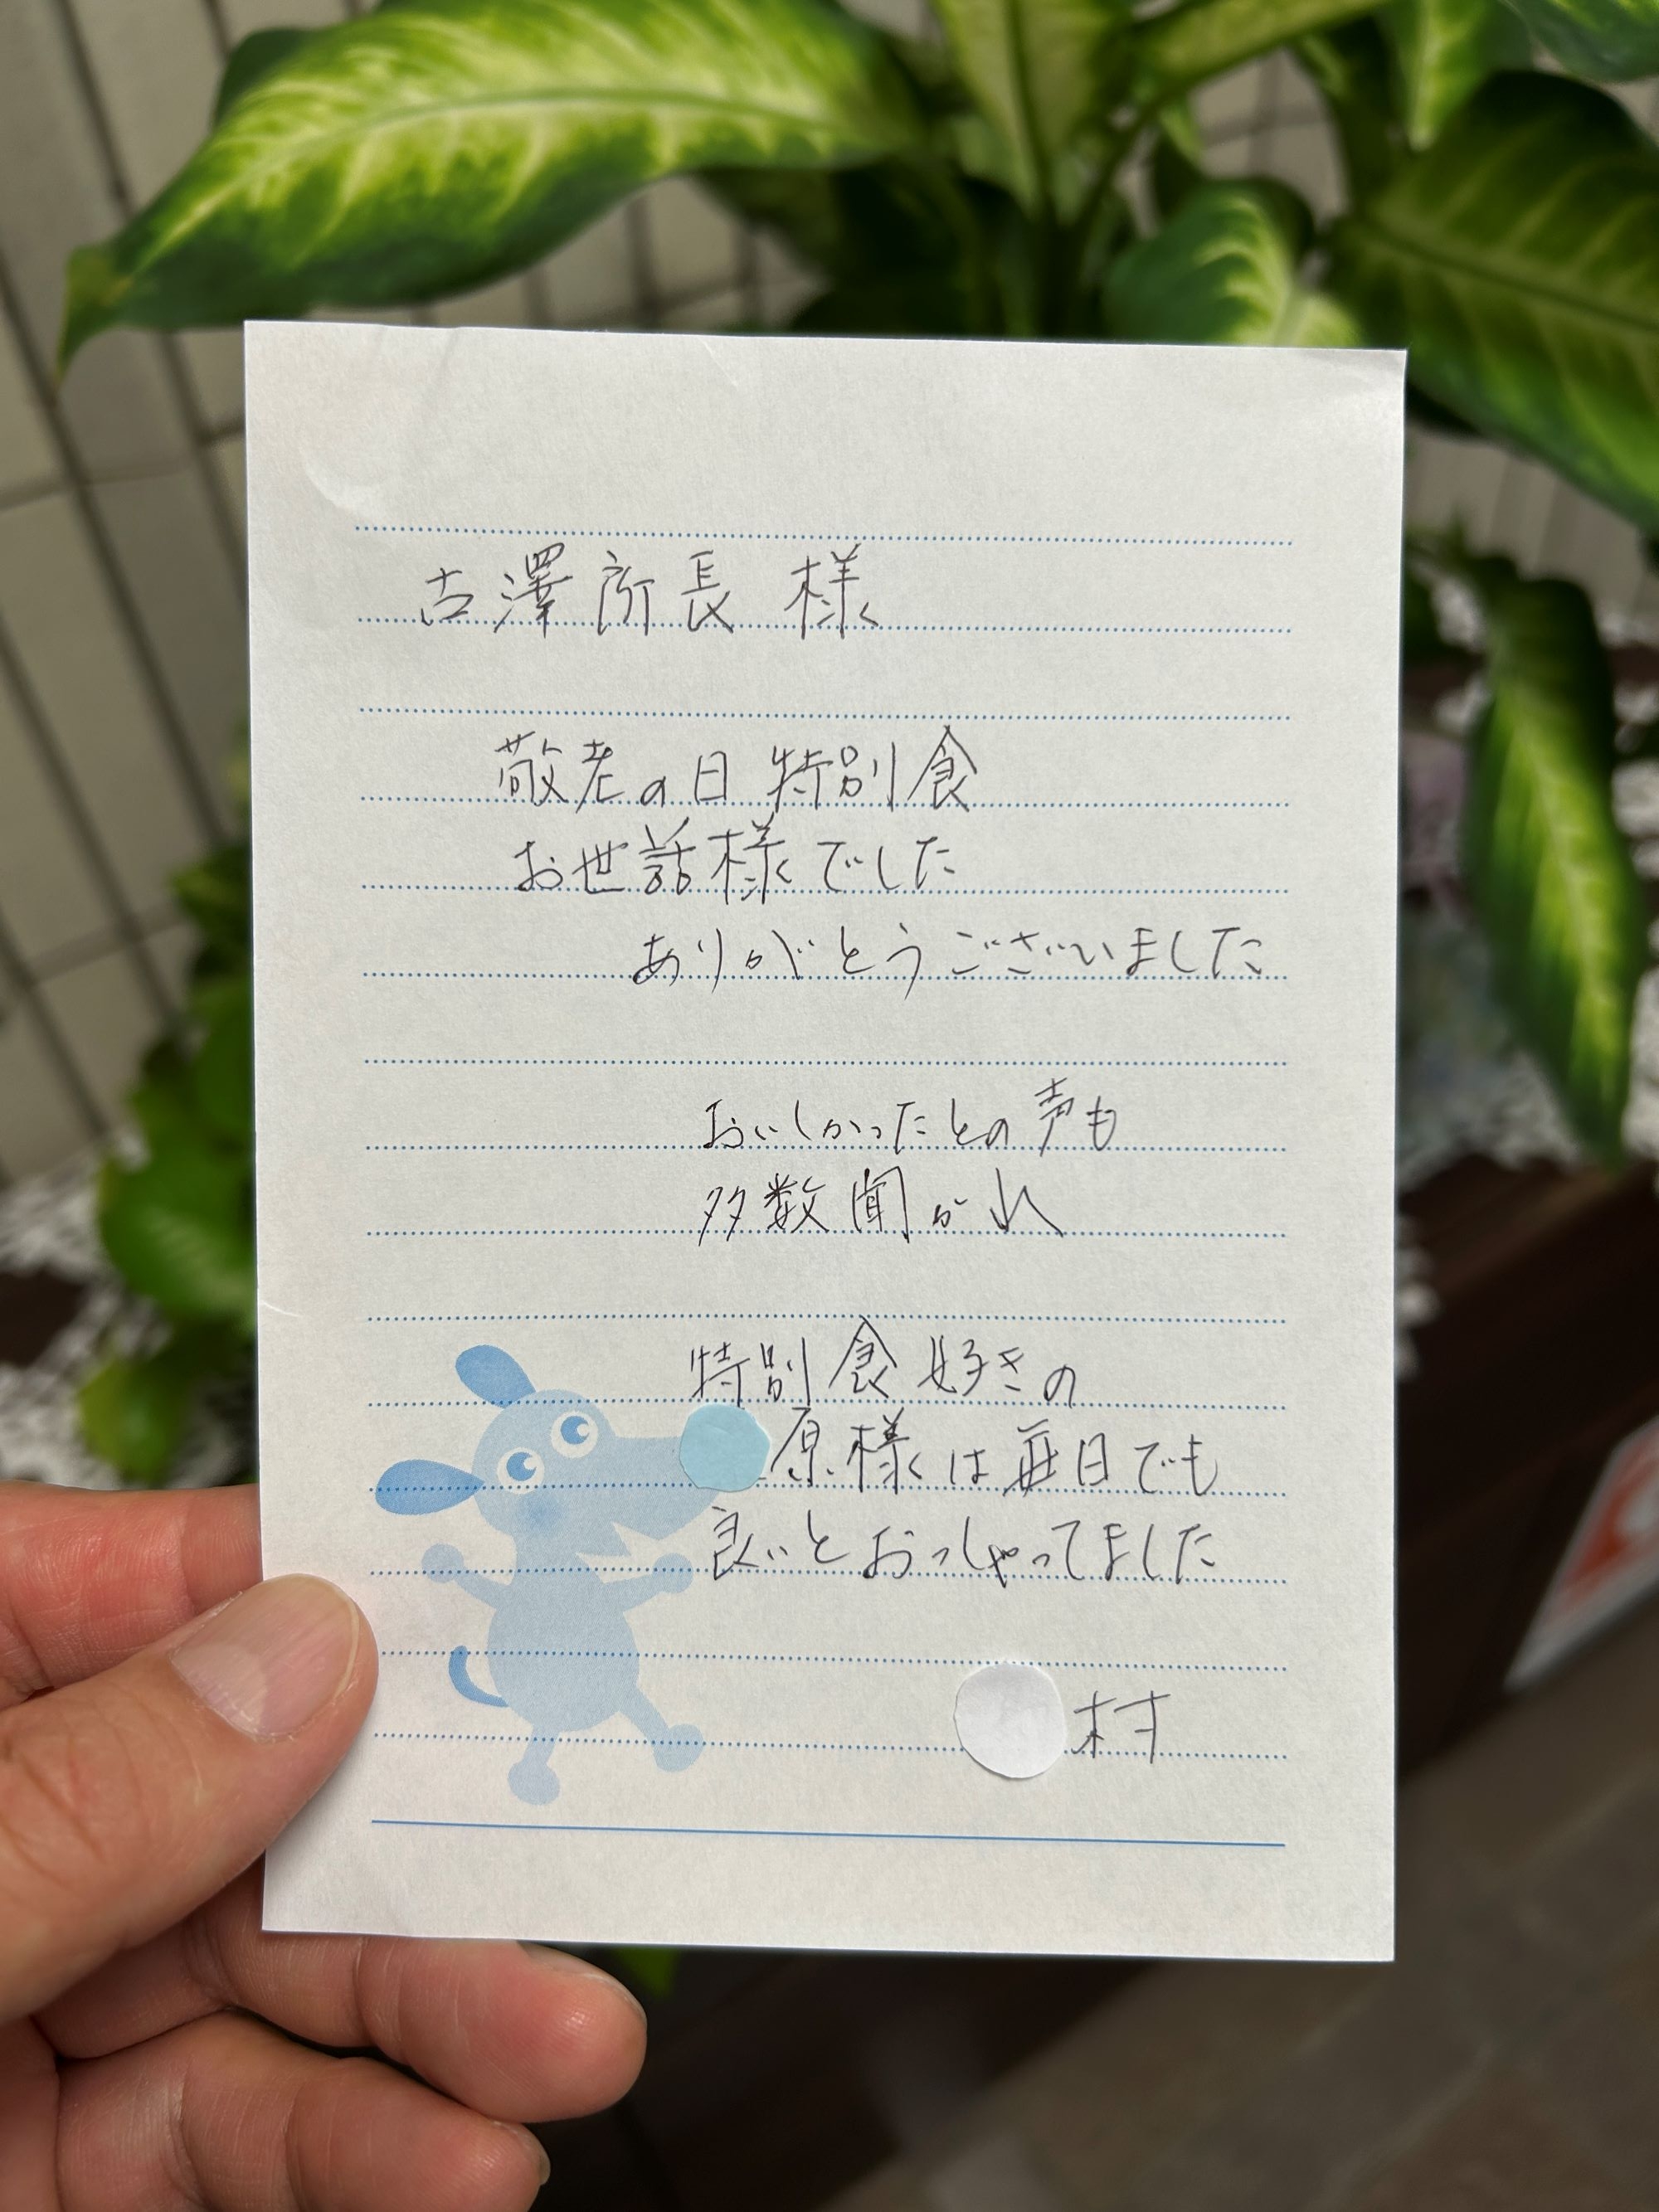 古澤所長 様
敬老の日 特別食
お世話様でした
ありがとうございました
おいしかったとの声も
多数聞かれ
特別食好きの
原様は毎日でも
良いとおっしゃってました
村